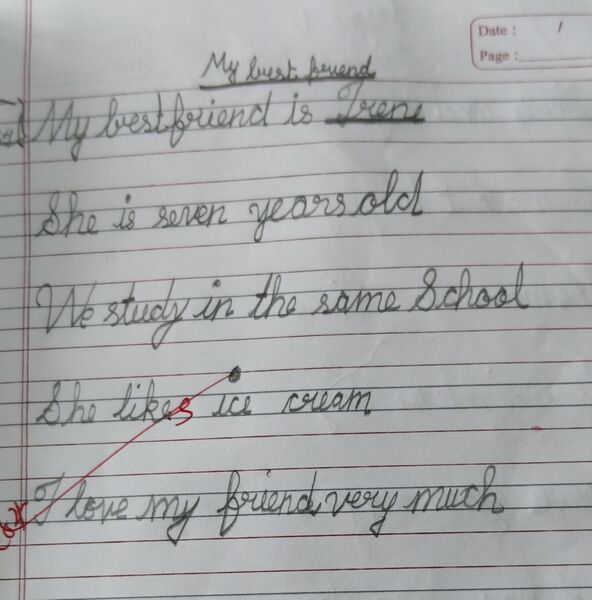 Date : /
Page :
My best friend
My best friend is Irene
She is seven years old
We study in the same School
She likes ice cream
I love my friend very much